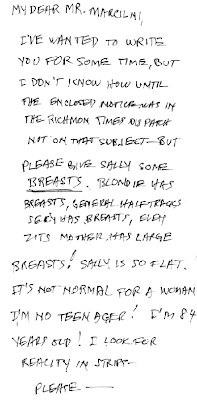 MY DEAR MR. MARCILNI,
I'VE WANTED TO WRITE
YOU FOR SOME TIME, BUT
I DON'T KNOW HOW UNTIL
THE ENCLOSED NOTICE WAS IN
THE RICHMON TIMES DISPATCH
NOT ON THAT SUBJECT—BUT
PLEASE GIVE SALLY SOME
BREASTS. BLONDIE HAS
BREASTS, GENERAL HALFTRACKS
HAS BREASTS, EVEN
ZITS MOTHER HAS LARGE
BREASTS! SALLY IS SO FLAT.
IT'S NOT NORMAL FOR A WOMAN
I'M NO TEENAGER! I'M 84
YEARS OLD! I LOOK FOR
REALITY IN STRIPS—
PLEASE —